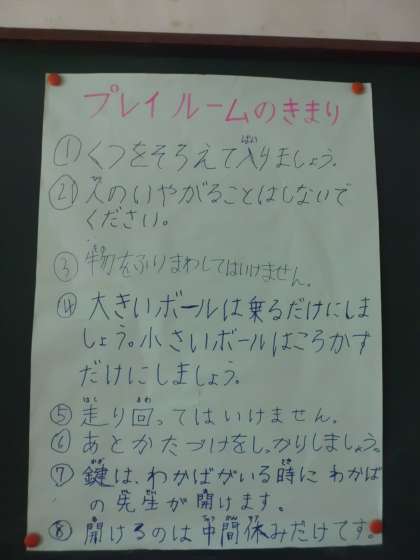 プレイルームのきまり
①くつをそろえて入りましょう。
②人のいやがることはしないで
ください。
③物をふりまわしてはいけません。
④大きいボールは乗るだけにしま
しょう。小さいボールはころかす
だけにしましょう。
⑤走り回ってはいけません。
⑥あとかたづけをしっかりしましょう。
⑦鍵は、わかばがいる時にわかば
の先生が開けます。
⑧開けるのは中間休みだけです。